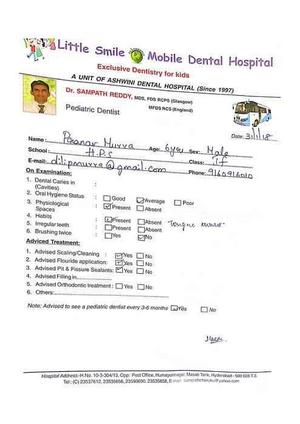 Little Smile Mobile Dental Hospital
Exclusive Dentistry for kids
A UNIT OF ASHWINI DENTAL HOSPITAL (Since 1997)
Dr. SAMPATH REDDY, MDS, FDS RCPS (Glasgow)
MFDS RCS (England)
Pediatric Dentist
Date: 3/1/18
Name: Murra Age: 6 yrs Sex: Male
School: H.P.S Class: II
E-mail: dilipmurra@gmail.com Phone: 9160916010
On Examination:
1. Dental Caries in :
(Cavities)
2. Oral Hygiene Status : Good Average Poor
3. Physiological : Present Absent
Spaces
4. Habits : Present Absent Tongue
5. Irregular teeth : Present Absent
6. Brushing twice : Yes No
Adviced Treatment:
1. Advised Scaling/Cleaning : Yes No
2. Advised Flouride application: Yes No
3. Advised Pit & Fissure Sealants: Yes No
4. Advised Filling in
5. Advised Orthodontic treatment : Yes No
6. Others:
Note: Advised to see a pediatric dentist every 3-6 months Yes No
Hospital Address: H.No. 10-3-304/13, Opp. Post Office, Humayunnagar, Masab Tank, Hyderabad - 500 028 T.S.